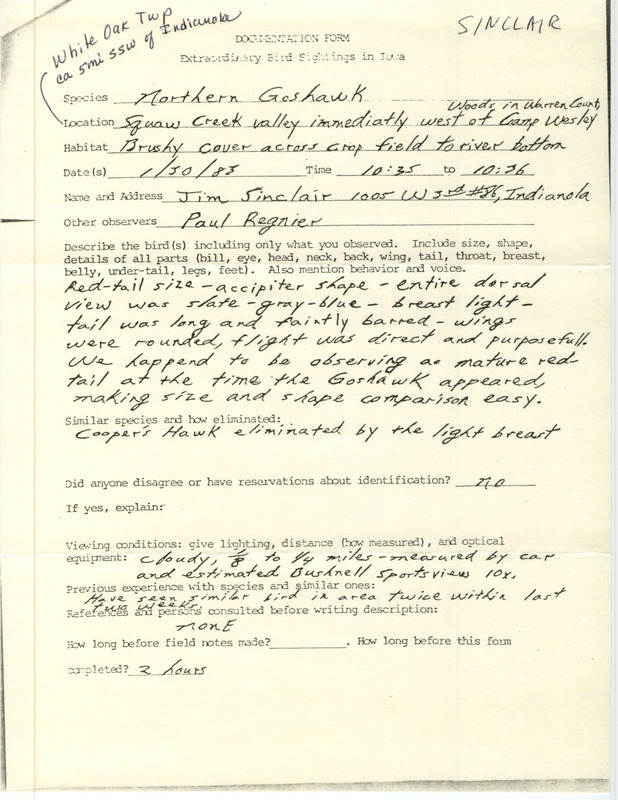 White Oak Twp
ca 5mi SSW of Indianola
SINCLAIR
DOCUMENTATION FORM
Extraordinary Bird Sightings in Iowa
Species Northern Goshawk
Woods in Warren County,
Location Squaw Creek valley immediatly west of Camp Wesley
Habitat Brushy cover across crop field to river bottom
Date(s) 1/30/83 Time 10:35 to 10:36
Name and Address Jim Sinclair 1005 W 3rd #86, Indianola
Other observers Paul Regnier
Describe the bird(s) including only what you observed. Include size, shape,
details of all parts (bill, eye, head, neck, back, wing, tail, throat, breast,
belly, under-tail, legs, feet). Also mention behavior and voice.
Red-tail size - accipiter shape - entire dorsal
view was slate-gray-blue - breast light -
tail was long and faintly barred - wings
were rounded, flight was direct and purposefull.
We happend to be observing a mature red-
tail at the time the Goshawk appeared,
making size and shape comparison easy.
Similar species and how eliminated:
Cooper's Hawk eliminated by the light breast
Did anyone disagree or have reservations about identification? no
If yes, explain:
Viewing conditions: give lighting, distance (how measured), and optical
equipment: cloudy, 1/8 to 1/4 miles - measured by car
and estimated Bushnell Sportsview 10x.
Previous experience with species and similar ones:
Have seen similar bird in area twice within last
two weeks.
References and persons consulted before writing description:
nonE
How long before field notes made? . How long before this form
completed? 2 hours